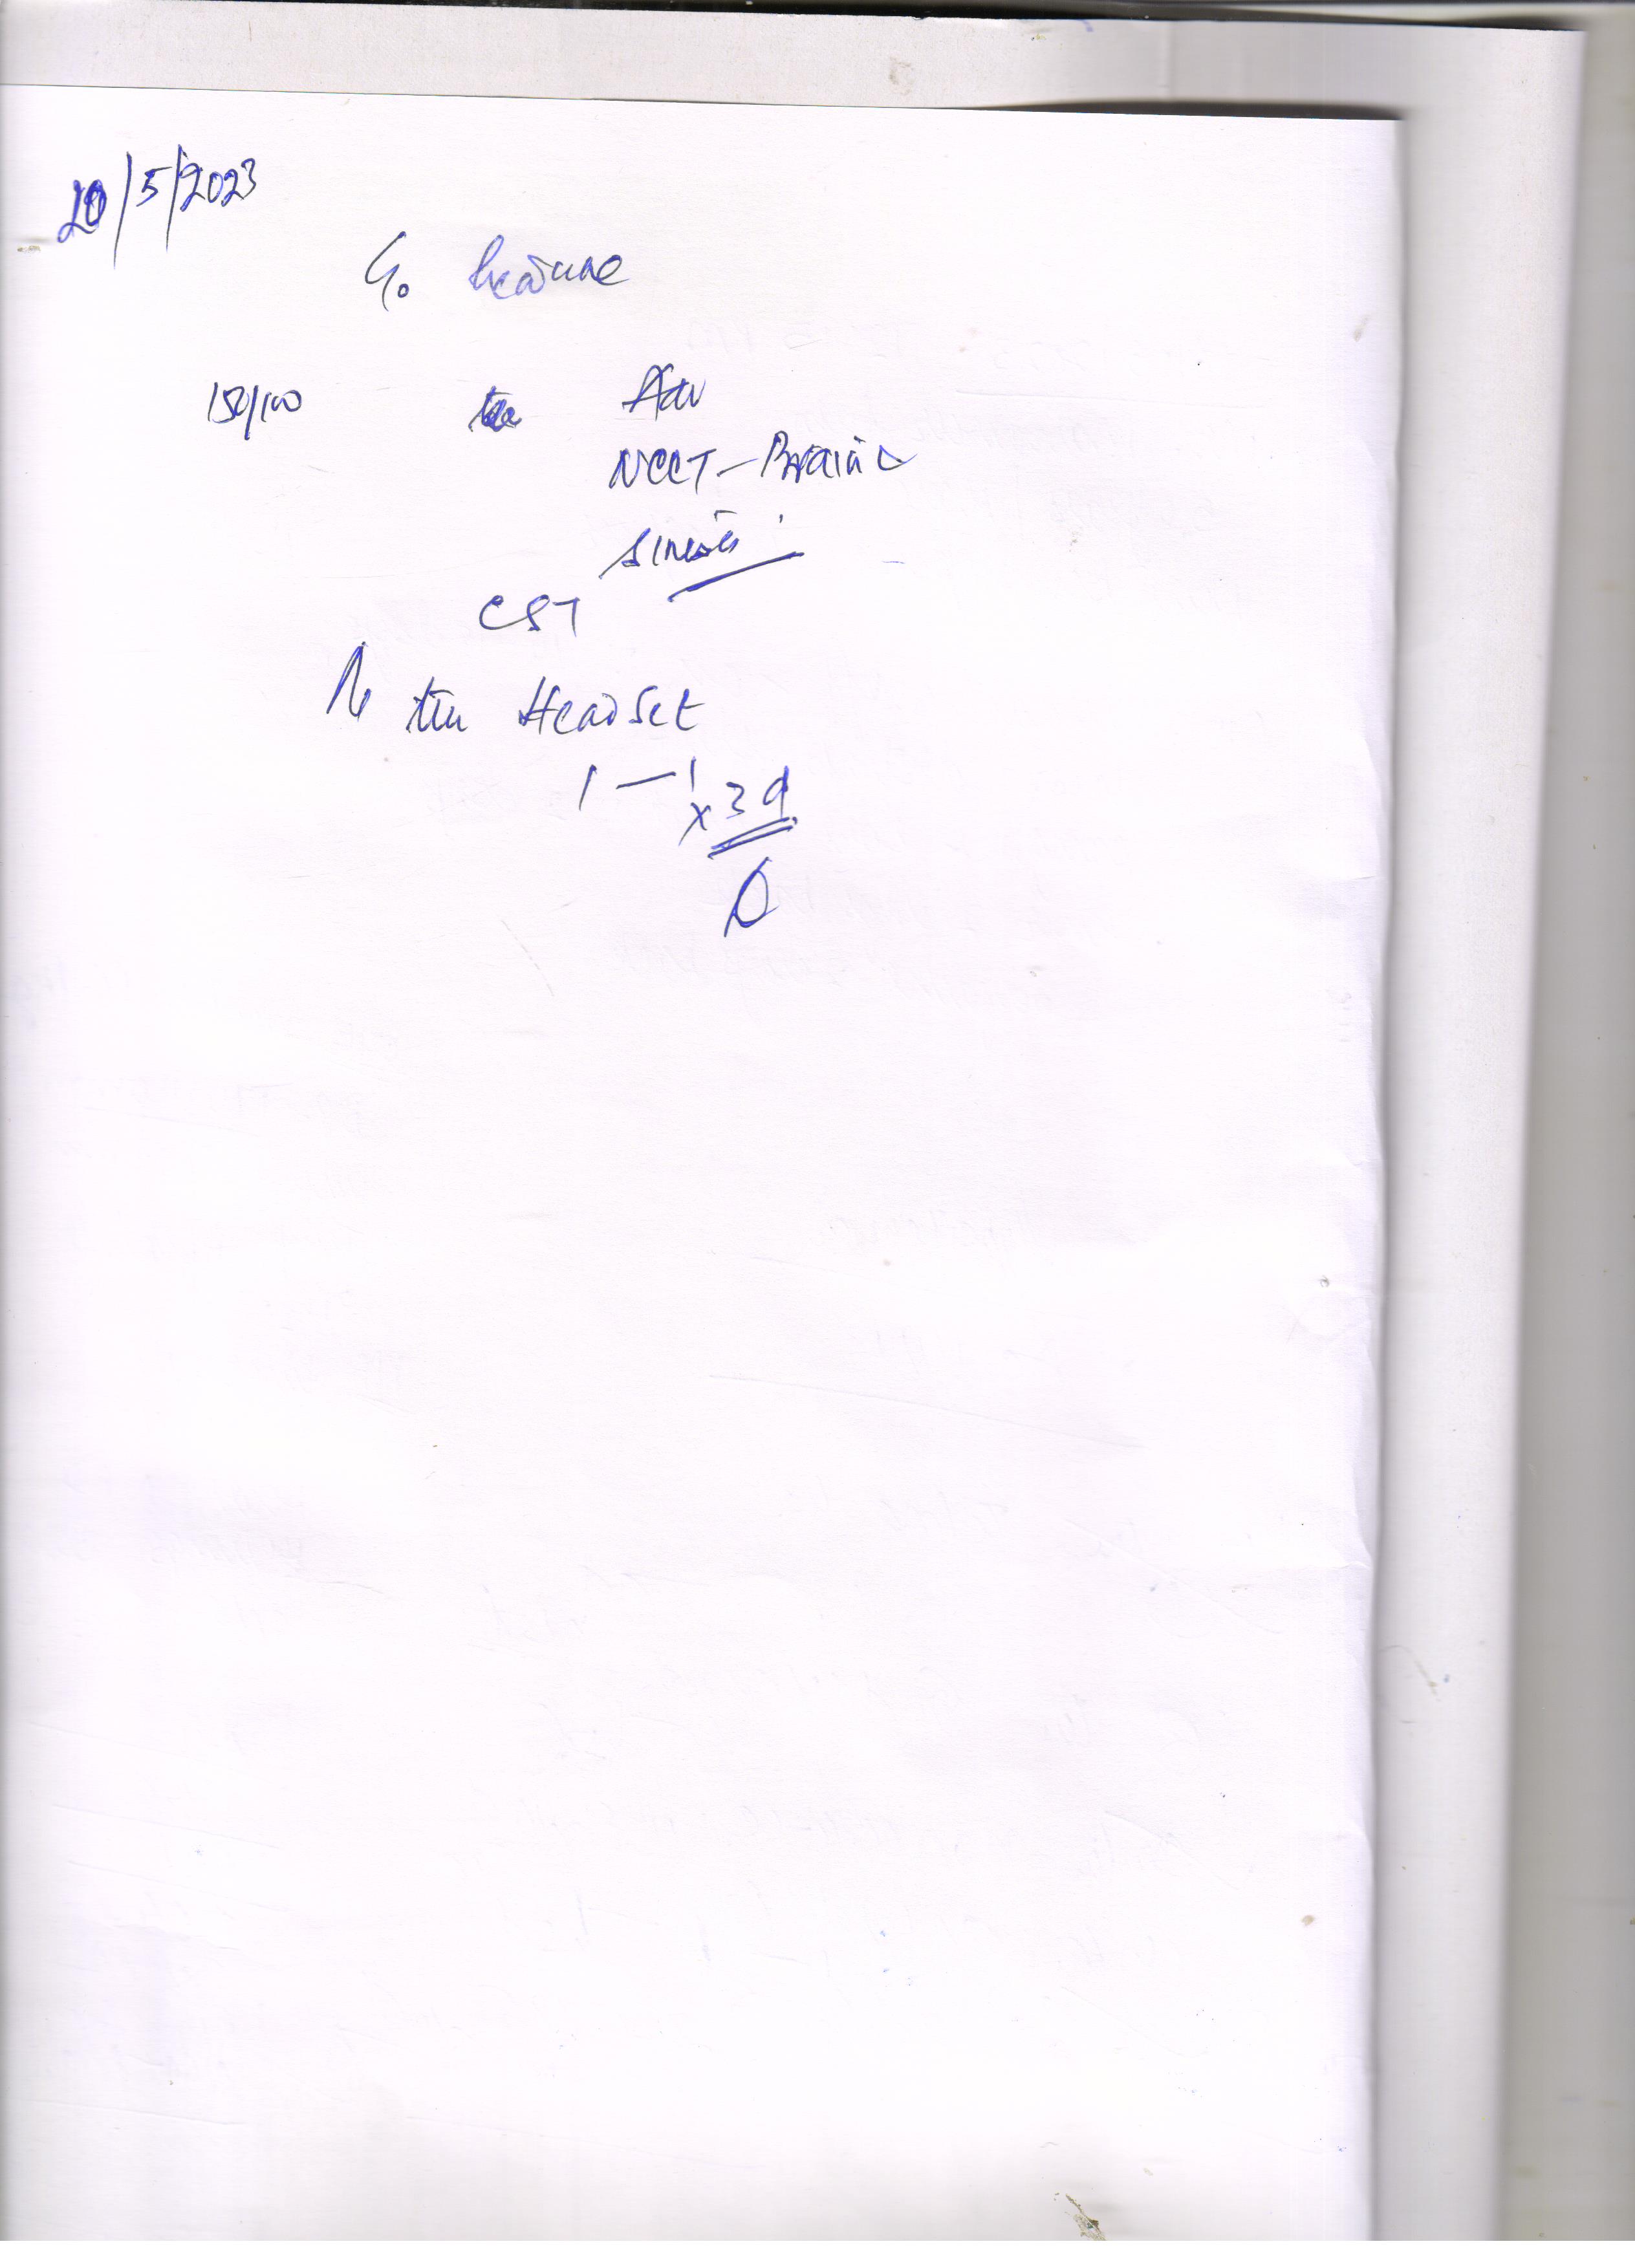 20/5/2023
C/o headache
150/100 Adv
NCCT-Brain
sinuses
CST
Headset
1 — 1
x 3 d